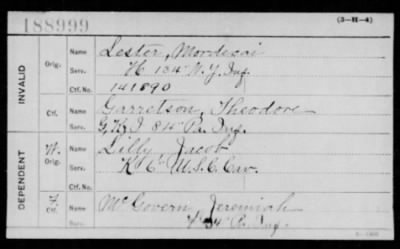 188999
(3-H-4)
INVALID
Orig.
Name Lester, Mordecai
Serv. H 134" N.Y. Inf.
Ctf.No. 141890
Ctf.
Name Garretson, Theodore
Serv. G, K & I 84" Pa. Inf.
Ctf.No.
DEPENDENT
W.
Orig.
Name Lilly Jacob
Serv. K 6" U.S.C. Cav.
Ctf.No.
Ctf.
Name McGovern, Jeremiah
Pa. Inf.